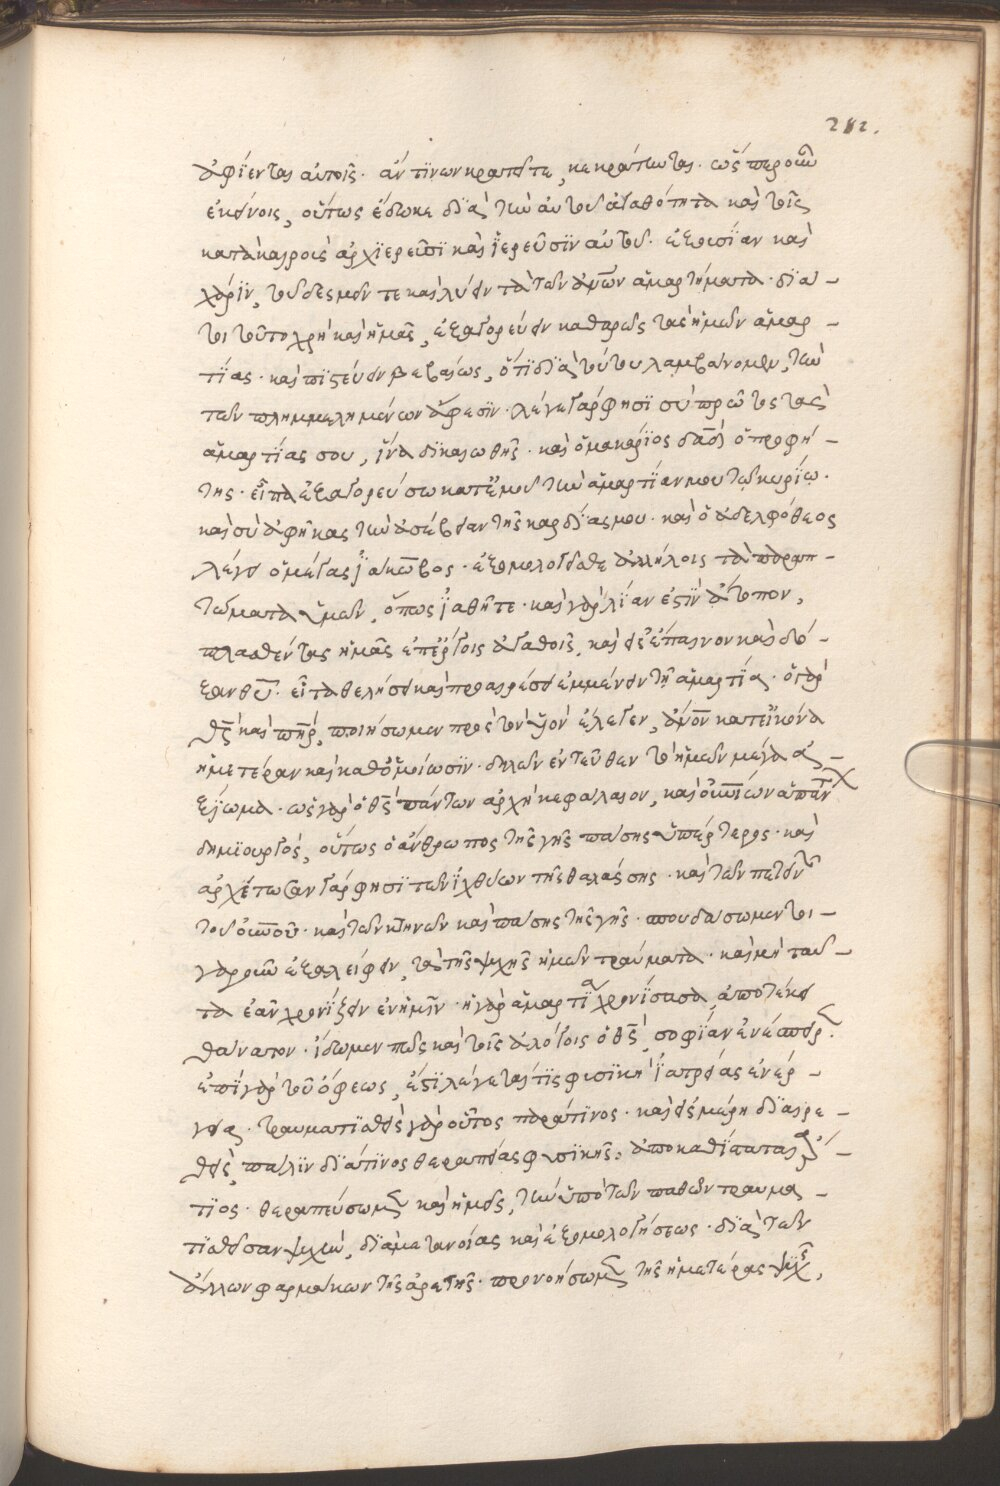 212.
ἀφίενται αὐτοῖς· ἄν τϊνων κρατῆτε, κεκράτηνται. ὥσπερ οὖν
ἐκείνοις, οὕτως ἔδωκε δϊὰ τὴν αὐτοῦ ἀγαθότητα καὶ τοῖς
κατὰ καιροὺς ἀρχϊερεῦσϊ καὶ ἱερεῦσϊν αὐτοῦ. ἐξουσίαν καὶ
χάρϊν, τοῦ δεσμεῖν τε καὶ λύειν τὰ τῶν ἀνῶν ἁμαρτήματα. δϊα-
τοι τοῦτο χρὴ καὶ ἡμᾶς, ἐξαγορεύειν καθαρῶς τὰς ἡμῶν ἁμαρ-
τίας. καὶ πϊστεύειν βεβαίως, ὅτϊ δϊὰ τούτου λαμβάνομεν, τὴν
τῶν πλημμελημένων ἄφεσϊν. λέγε γάρ φησϊ σὺ πρῶτος τὰς
ἁμαρτίας σου, ἵνα δϊκαιωθῆς. καὶ ὁ μακάρϊος δαδ ὁ προφή-
της. εἶπα ἐξαγορεύσω κατ' ἐμοῦ τὴν ἁμαρτίαν μου τῶ κυρίω.
καὶ σὺ ἀφῆκας τὴν ἀσέβειαν τῆς καρδίας μου. καὶ ὁ ἀδελφόθεος
λέγει ὁ μέγας ἰάκωβος. ἐξομολογεῖσθε ἀλλήλοις τὰ παραπ-
τώματα ὑμῶν, ὅπως ἰαθῆτε. καὶ γὰρ λίαν ἐστὶν ἄτοπον,
πλασθέντας ἡμᾶς ἐπ' ἔργοις ἀγαθοῖς, καὶ εἰς ἔπαινον καὶ δό-
ξαν θυ. εἶτα θελήσει καὶ προαιρέσει ἐμμένειν τῆ ἁμαρτία. ὁ γὰρ
θς καὶ πηρ, ποιήσωμεν πρὸς τὸν υἱὸν ἔλεγεν, ἄνον κατ' εἰκόνα
ἡμετέραν καὶ καθ' ὁμοίωσϊν. δηλῶν ἐντεῦθεν τὸ ἡμῶν μέγα ἀ-
ξίωμα. ὡς γὰρ ὁ θς πάντων ἀρχὴ κεφάλαιον, καὶ οἰωνϊῶν ἁπάντ
δημϊουργός, οὕτως ὁ ἄνθρωπος τῆς γῆς πάσης ὑπέρτερος. καὶ
ἀρχέτωσαν γάρ φησϊ τῶν ἰχθύων τῆς θαλάσσης. καὶ τῶν πετεινῶν
τοῦ οὐνοῦ. καὶ τῶν κτηνῶν καὶ πάσης τῆς γῆς. σπουδάσωμεν τοι-
γαροῦν ἐξαλείφειν, τὰ τῆς ψυχῆς ἡμῶν τραύματα. καὶ μὴ ταῦ-
τα ἐᾶν χρονίζειν ἐν ἡμῖν. ἡ γὰρ ἁμαρτία χρονίσασα, ἀποτίκτει
θάνατον. ἴδωμεν πῶς καὶ τοῖς ἀλόγοις ὁ θς, σοφίαν ἐνέσπειρε.
ἐπὶ γὰρ τοῦ ὄφεως, ἔστϊ λέγεται τϊς φυσϊκὴ ἰατρείας ἐνέρ-
γεια. τραυματϊσθεὶς γὰρ οὗτος παρά τϊνος. καὶ εἰς μέρη δϊαιρε-
θείς, πάλϊν δϊά τϊνος θεραπείας φυσϊκῆς, ἀποκαθίσταται
τϊος. θεραπεύσωμεν καὶ ἡμεῖς, τὴν ὑπὸ τῶν παθῶν τραυμα-
τϊσθεῖσαν ψυχήν, δϊὰ μετανοίας καὶ ἐξομολογήσεως. δϊὰ τῶν
ἄλλων φαρμάκων τῆς ἀρετῆς. προνοήσωμεν τῆς ἡμετέρας ψυχῆς,